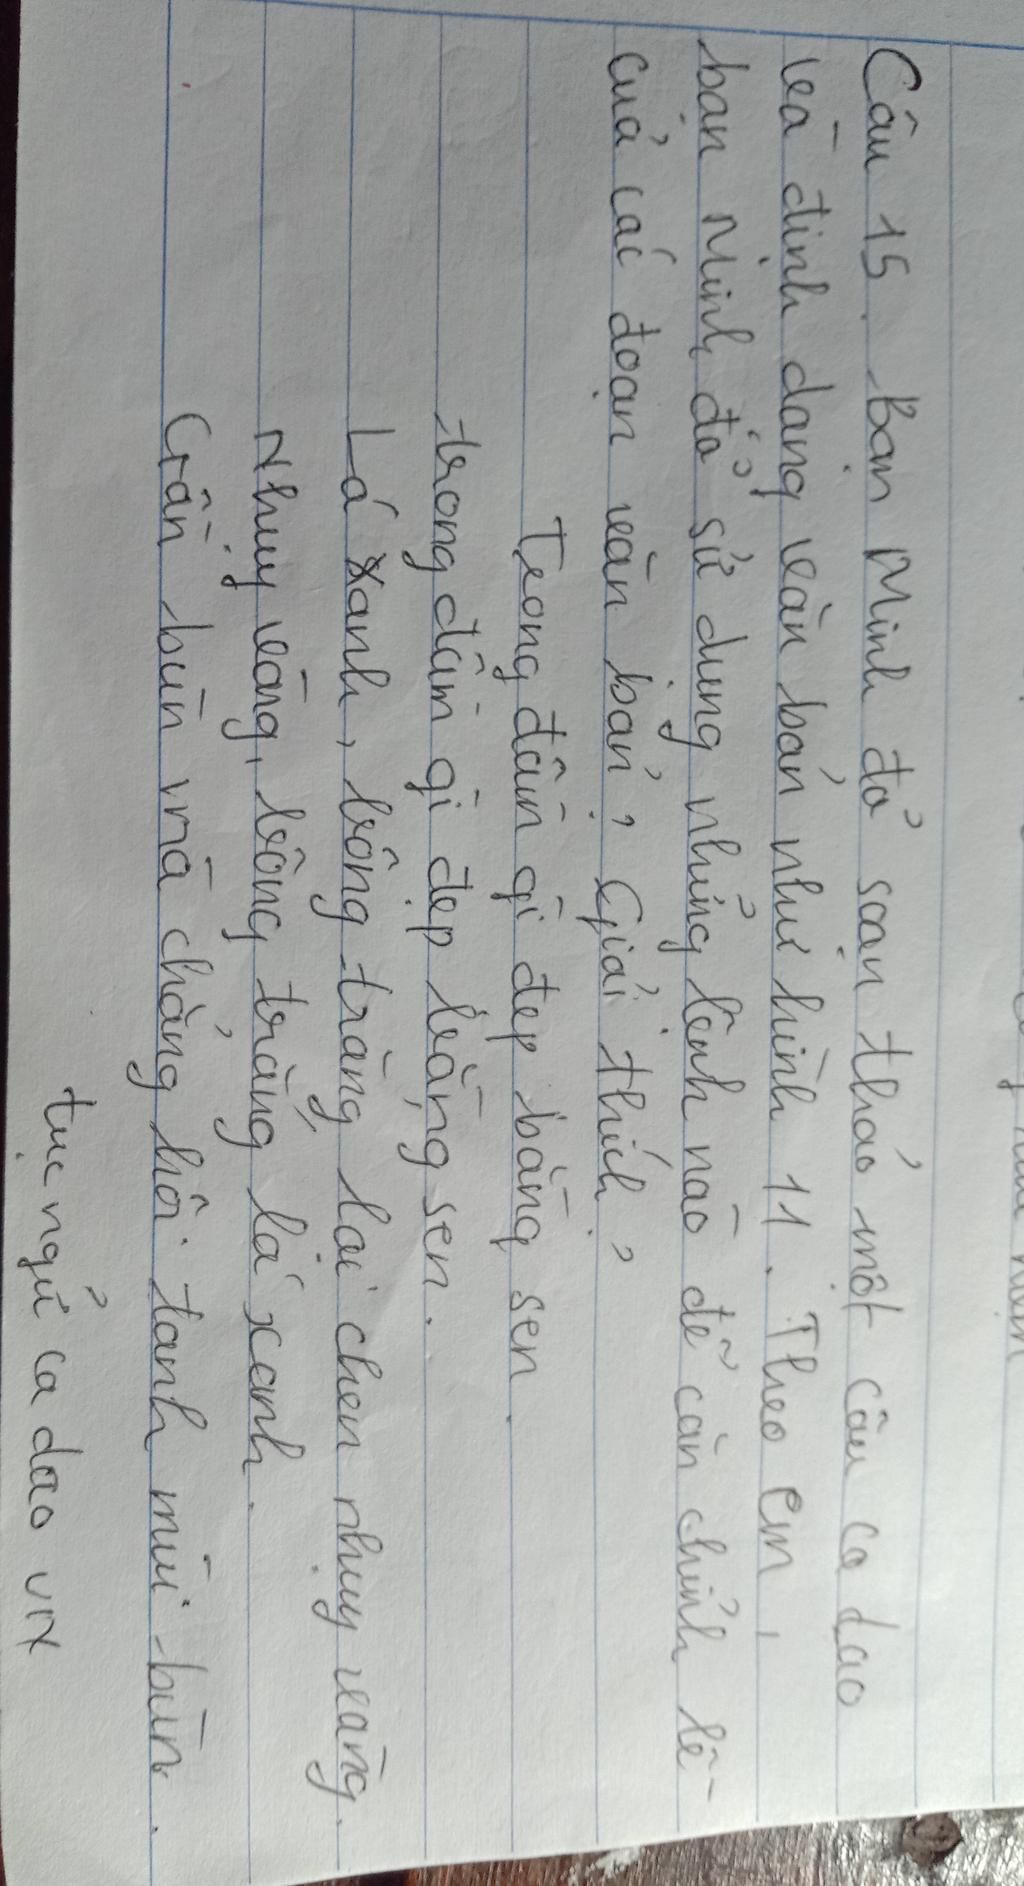 Câu 15. Bạn Minh đả soạn thảo một câu ca dao
và định dạng văn bản như hình 11. Theo em,
bạn Minh đả sử dụng những lệnh nào để căn chỉnh lề
của các đoạn văn bản? Giải thích?
Trong đầm gì đẹp bằng sen.
trong đầm gì đẹp bằng sen.
Lá xanh, bông trắng lại chen nhụy vàng.
Nhụy vàng, bông trắng lá xanh.
Gần bùn mà chẳng hôi tanh mùi bùn.
tục ngử ca dao VN